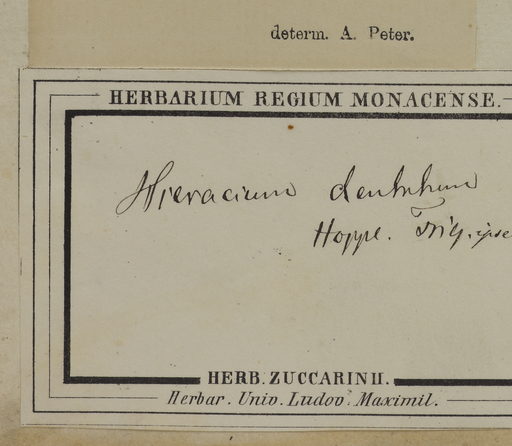 determ. A. Peter.
HERBARIUM REGIUM MONACENSE.
Hieracium dentatum
Hoppe. ipse
HERB. ZUCCARINII.
Herbar. Univ. Ludov. Maximil.